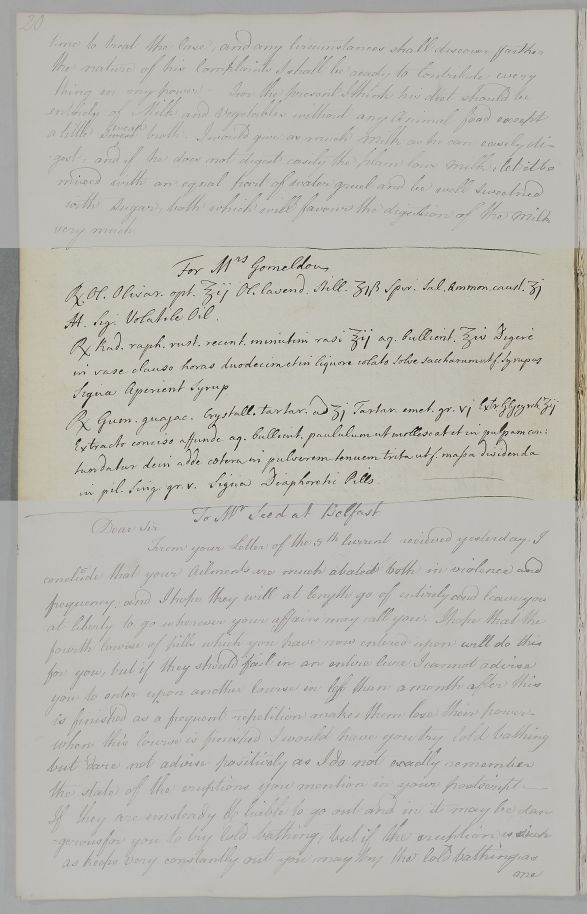 20
time to treat the Case, and any Circumstances shall discover farther
the nature of his Complaints I shall be ready to Contribute every
thing in my power - For the present I think his diet should be
entirely of Milk and Vegetables without any animal food except
a little broth. I would give as much milk as he can easily di-
gest, and if he does not digest easily the plain Cows milk, let it be
mixed with an equal part of water gruel and be well sweetned
with Sugar, both which will favour the digestion of the Milk
very much.
For Mrs Gomeldon
℞ Ol. Olivar. opt. ℥ij Ol. lavend. still. ʒiß Spir. Sal. ammon. caust. ʒj
M. Sig. Volatile Oil.
℞ Rad. raph. rust. recent. minutim rasi ℥ij aq. bullient. ℥iv Digere
in vase clauso horas duodecim et in liquore colato solve saccharum ut f. Syrupus
Signa Aperient Syrup
℞ Gum. guajac. Crystall. tartar. ad ʒj Tartar. emet. gr. vj Extr. Glycyrrh. ʒij
Extracto conciso affunde aq. bullient. paululum ut mollescat et in pulpam con:
tundatur dein adde cetera in pulverem tenuem trita ut f. massa dividenda
in pil. sing. gr. v. Signa Diaphoretic Pills
To Mr Seed at Belfast
Dear Sir
From your Letter of the 5th Current received yesterday, I
conclude that your Ailments are much abated both in violence and
frequency, and I hope they will at length go of entirely and leave you
at liberty to go wherever your affairs may call you. I hope that the
fourth Course of pills which you have now entered upon will do this
for you, but if they should fail in an entire Cure I cannot advise
you to enter upon another Course in less than a month after this
is finished as a frequent repetition makes them lose their power -
When this Course is finished I would have you try Cold bathing
but dare not advise positively as I do not exactly remember
the state of the eruptions you mention in your postscript -
If they are unsteady & liable to go out and in it may be dan
-gerous for you to try Cold bathing, but if the eruption is such
as keeps very constantly out you may try the Cold bathing as
me